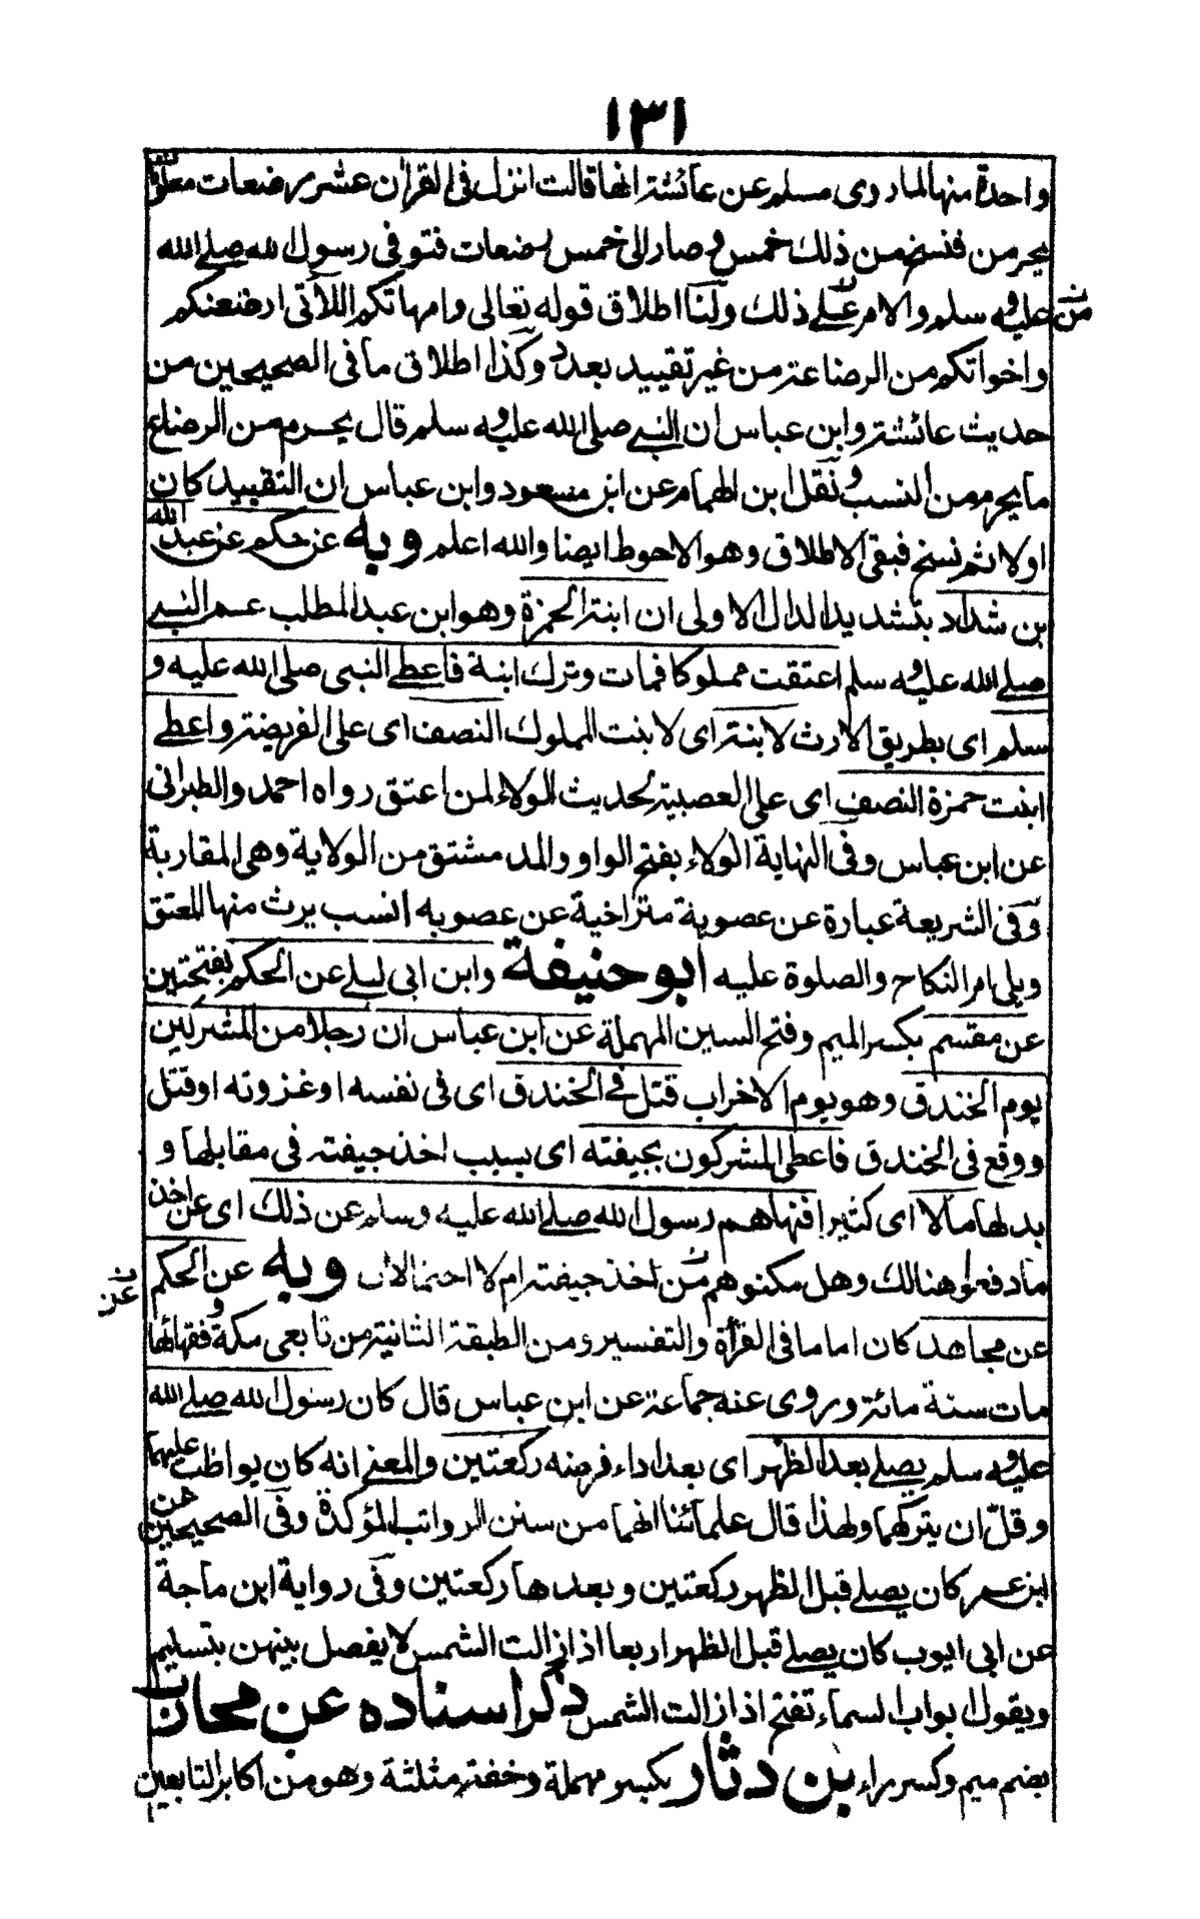 ١٣١
واحدة منها لما روى مسلم عن عائشة انها قالت انزل فى القرأن عشر رضعات معلومات
يحرمن فنسخ من ذلك خمس و صار الى خمس رضعات فتوفى رسول الله صلى الله
عليه و سلم والامر على ذلك ولنا اطلاق قوله تعالى وامهاتكم اللاتى ارضعنكم
واخواتكم من الرضاعة من غير تقييد بعدد وكذا اطلاق ما فى الصحيحين من
حديث عائشة وابن عباس ان النبى صلى الله عليه و سلم قال يحرم من الرضاع
ما يحرم من النسب و نقل ابن الهمام عن ابن مسعود وابن عباس ان التقييد كان
اولا ثم نسخ فبقى الاطلاق وهو الاحوط ايضا والله اعلم وبه عن حكم عن عبد الله
بن شداد بتشديد الدال الاولى ان ابنة الحمزة وهو ابن عبد المطلب عم النبى
صلى الله عليه و سلم اعتقت مملوكا فمات وترك ابنة فاعطى النبى صلى الله عليه و
سلم اى بطريق الارث لابنة اى لابنت المملوك النصف اى على الفريضة واعطى
ابنت حمزة النصف اى على العصبية لحديث الولاء لمن اعتق رواه احمد والطبرانى
عن ابن عباس وفى النهاية الولاء بفتح الواو والمد مشتق من الولاية وهى المقاربة
وفى الشريعة عبارة عن عصوبة متراخية عن عصوبه انسب يرث منها المعتق
ويلى امر النكاح والصلوة عليه ابو حنيفة وابن ابى ليلى عن الحكم بفتحتين
عن مقسم بكسر الميم وفتح السين المهملة عن ابن عباس ان رجلا من المشركين
يوم الخندق وهو يوم الاخراب قتل فى الخندق اى فى نفسه او غزوته او قتل
ووقع فى الخندق فاعطى المشركون بجيفته اى بسبب اخذ جيفته فى مقابلها و
بدلها مالا اى كثيرا فنهاهم رسول الله صلى الله عليه وسلم عن ذلك اى عن اخذ
ما دفعوا هنالك وهل مكنوهم من اخذ جيفته ام لا احتمالان وبه عن الحكم
عن مجاهد كان اماما فى القرأة والتفسير ومن الطبقة الثانية من تابعى مكة و فقهائها
مات سنة مائة وروى عنه جماعة عن ابن عباس قال كان رسول الله صلى الله
عليه و سلم يصلى بعد الظهر اى بعد اداء فرضه ركعتين والمعنى انه كان يواظب عليهما
وقلّ ان يتركهما ولهذا قال علمائنا انهما من سنن الرواتب المؤكدة وفى الصحيحين عن
ابن عمر كان يصلى قبل الظهر ركعتين وبعدها ركعتين وفى رواية ابن ماجة
عن ابى ايوب كان يصلى قبل الظهر اربعا اذا زالت الشمس لا يفصل بينهن بتسليم
ويقول ابواب السماء تفتح اذا زالت الشمس ذكر اسناده عن محارب
بضم ميم وكسر راء بن دثار بكسر مهملة وخفة مثلثة وهو من اكابر التابعين
من
عن